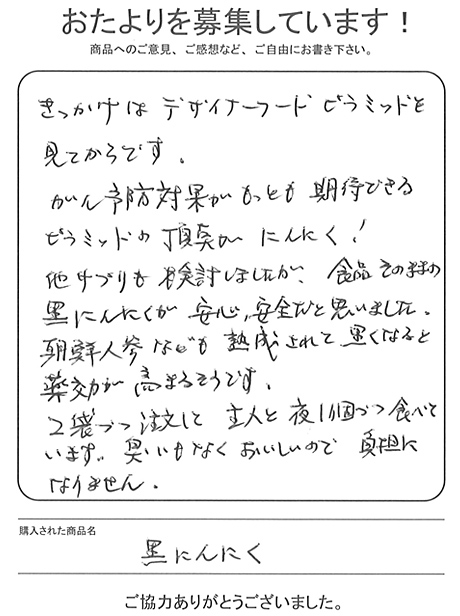 おたよりを募集しています！
商品へのご意見、ご感想など、ご自由にお書き下さい。
きっかけは デザイナーフード ピラミッドを
見てからです。
がん予防対果がもっとも 期待できる
ピラミッドの頂点が にんにく！
他サプリも 検討しましたが、食品そのままの
黒にんにくが 安心、安全だと思いました。
朝鮮人参なども 熟成されて 黒くなると
薬効が 高まるそうです。
2袋づつ 注文して 主人と 夜1個づつ食べて
います。臭いもなく おいしいので 負担に
なりません。
購入された商品名
黒にんにく
ご協力ありがとうございました。